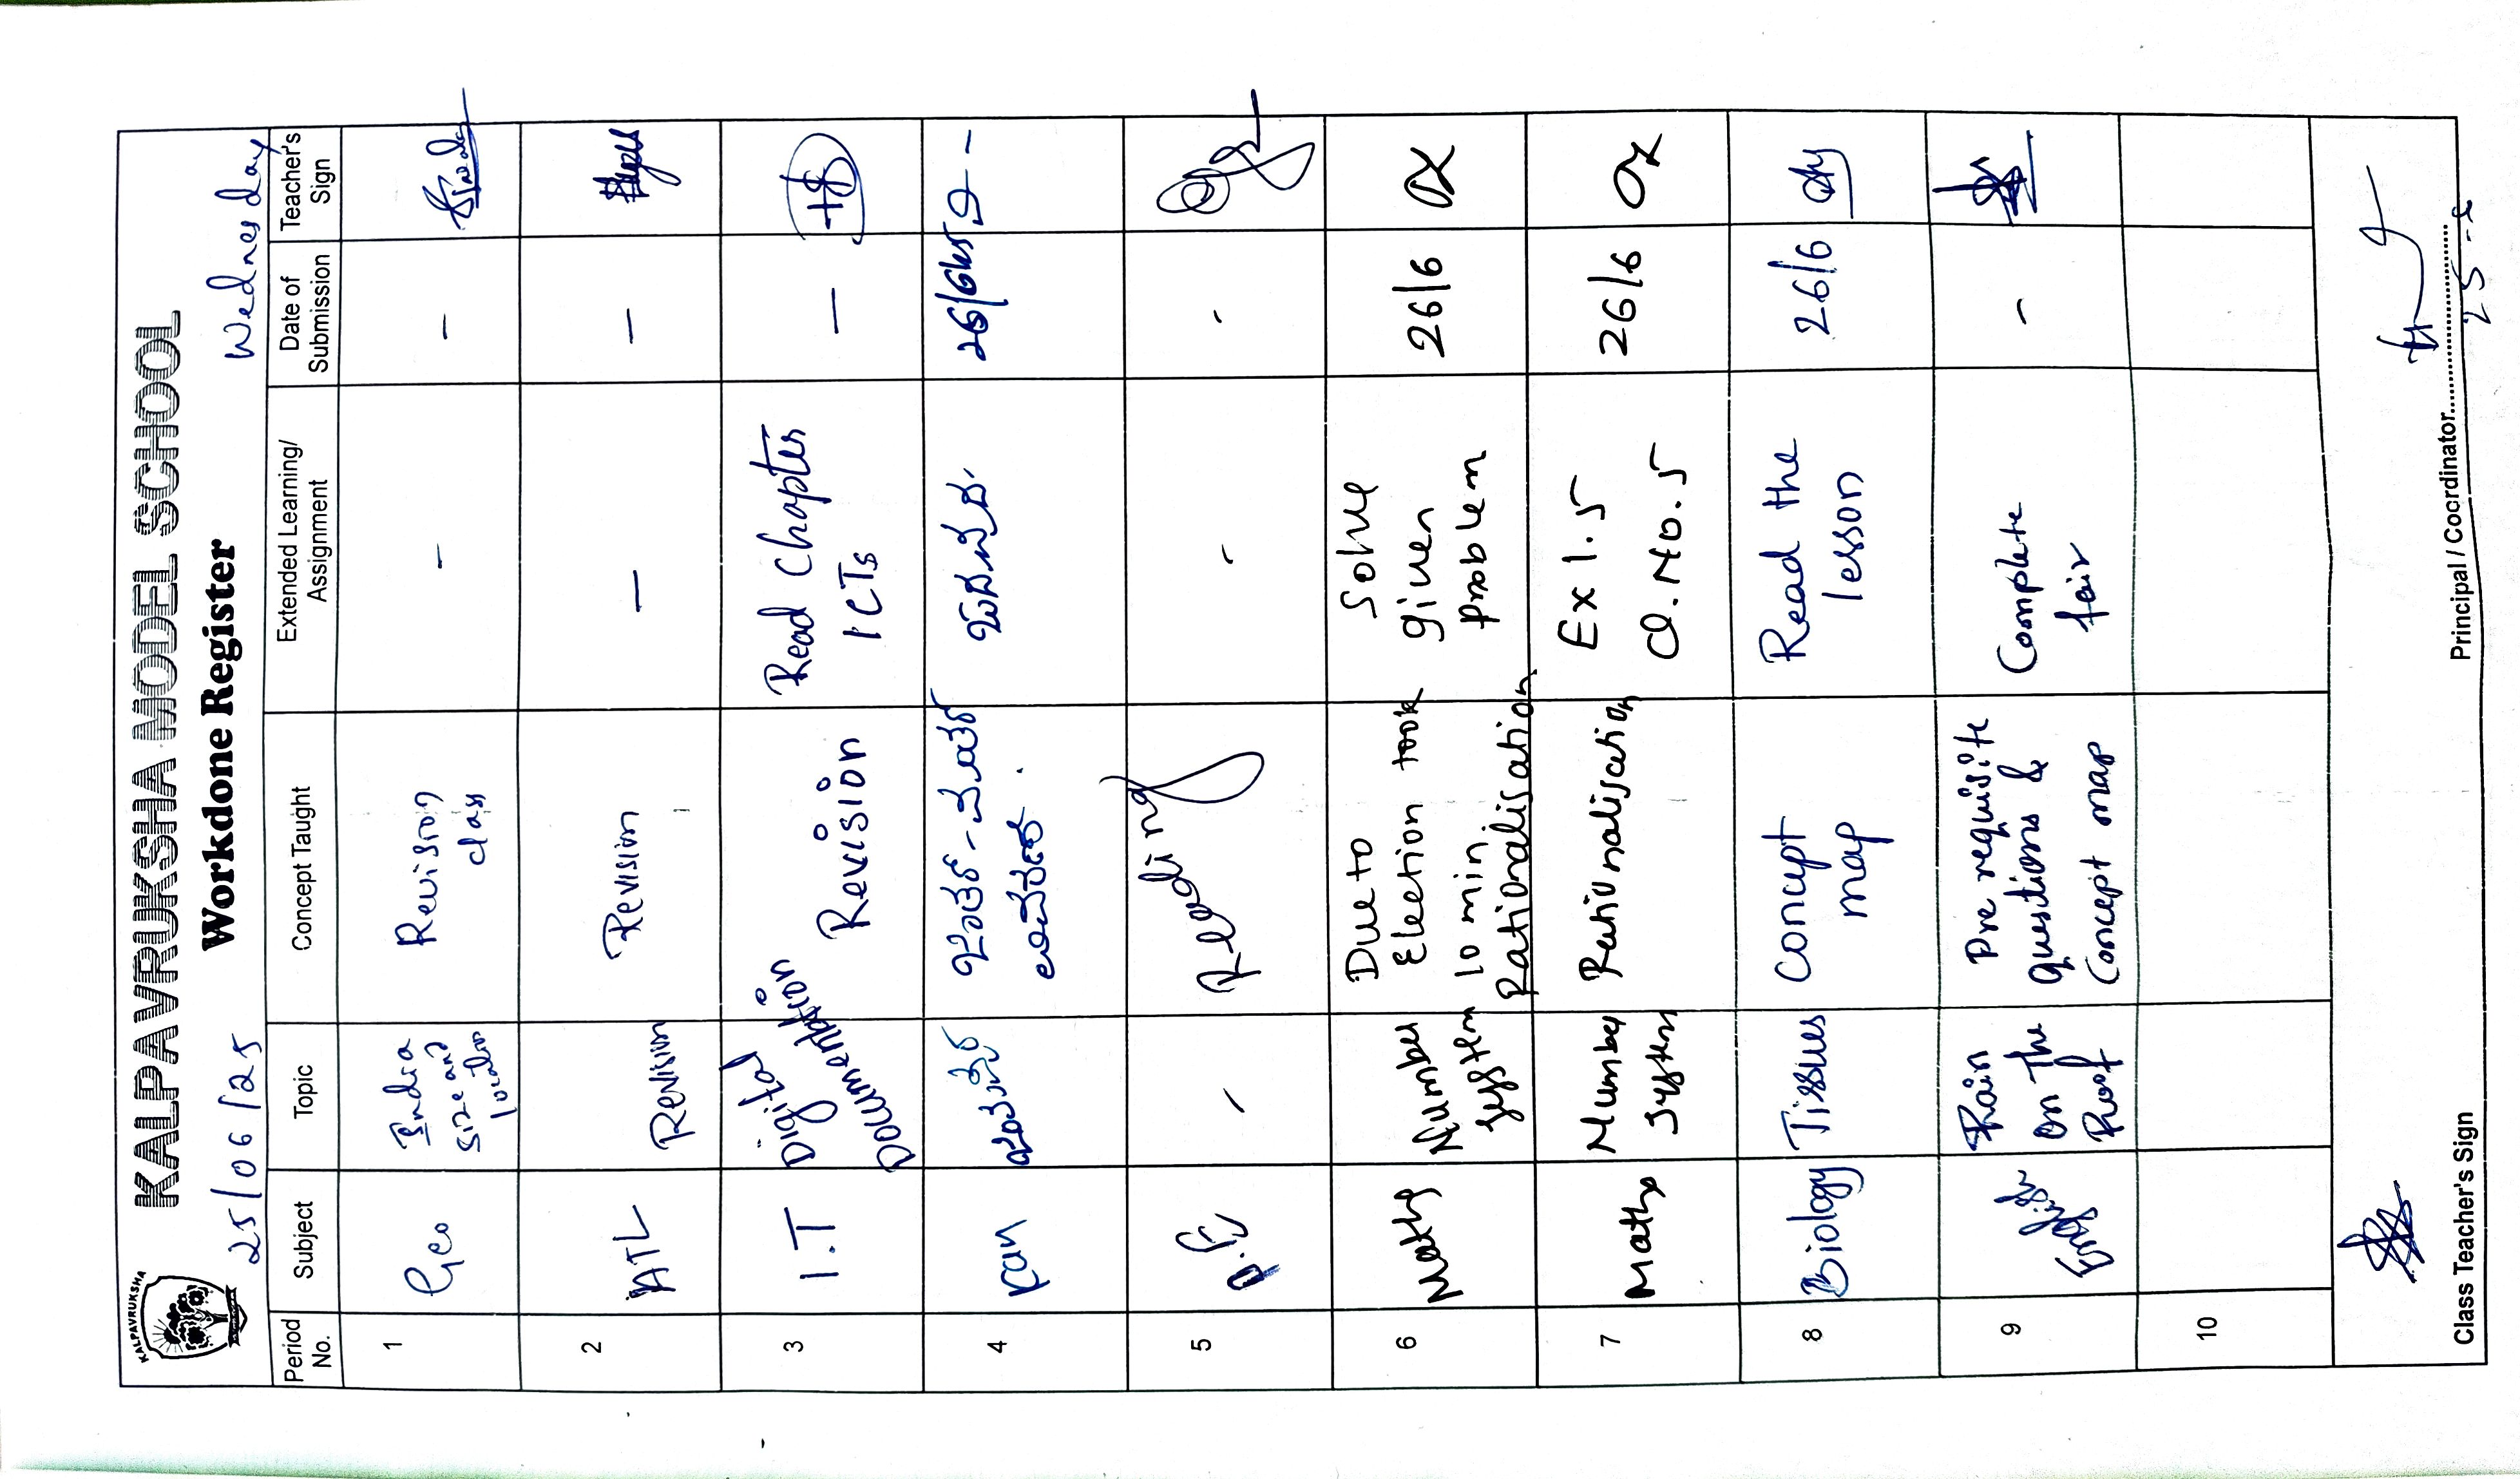 KALPAVRUKSHA
KALPAVRUKSHA MODEL SCHOOL
Workdone Register
25/06/25
Wednesday
Period No. Subject Topic Concept Taught Extended Learning/ Assignment Date of Submission Teacher's Sign
1 Geo India size and location Revision class - -
2 ATL Revision Revision - -
3 I.T Digital Documentation Revision Read Chapter ICTs -
4 Kan
5 Reading
6 Maths Number system Due to Election took 10 min Rationalisation Solve given problem 26/6
7 Maths Number system Rationalisation Ex 1.5 Q.No.5 26/6
8 Biology Tissues concept map Read the lesson 26/6
9 English Rain on The Roof Pre requisite questions & Concept map Complete fair -
10
Class Teacher's Sign
Principal / Cocrdinator